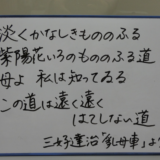 淡くかなしきもののふる
紫陽花いろのもののふる道
母よ 私は知つてゐる
この道は遠く遠く
はてしない道
三好達治「乳母車」より